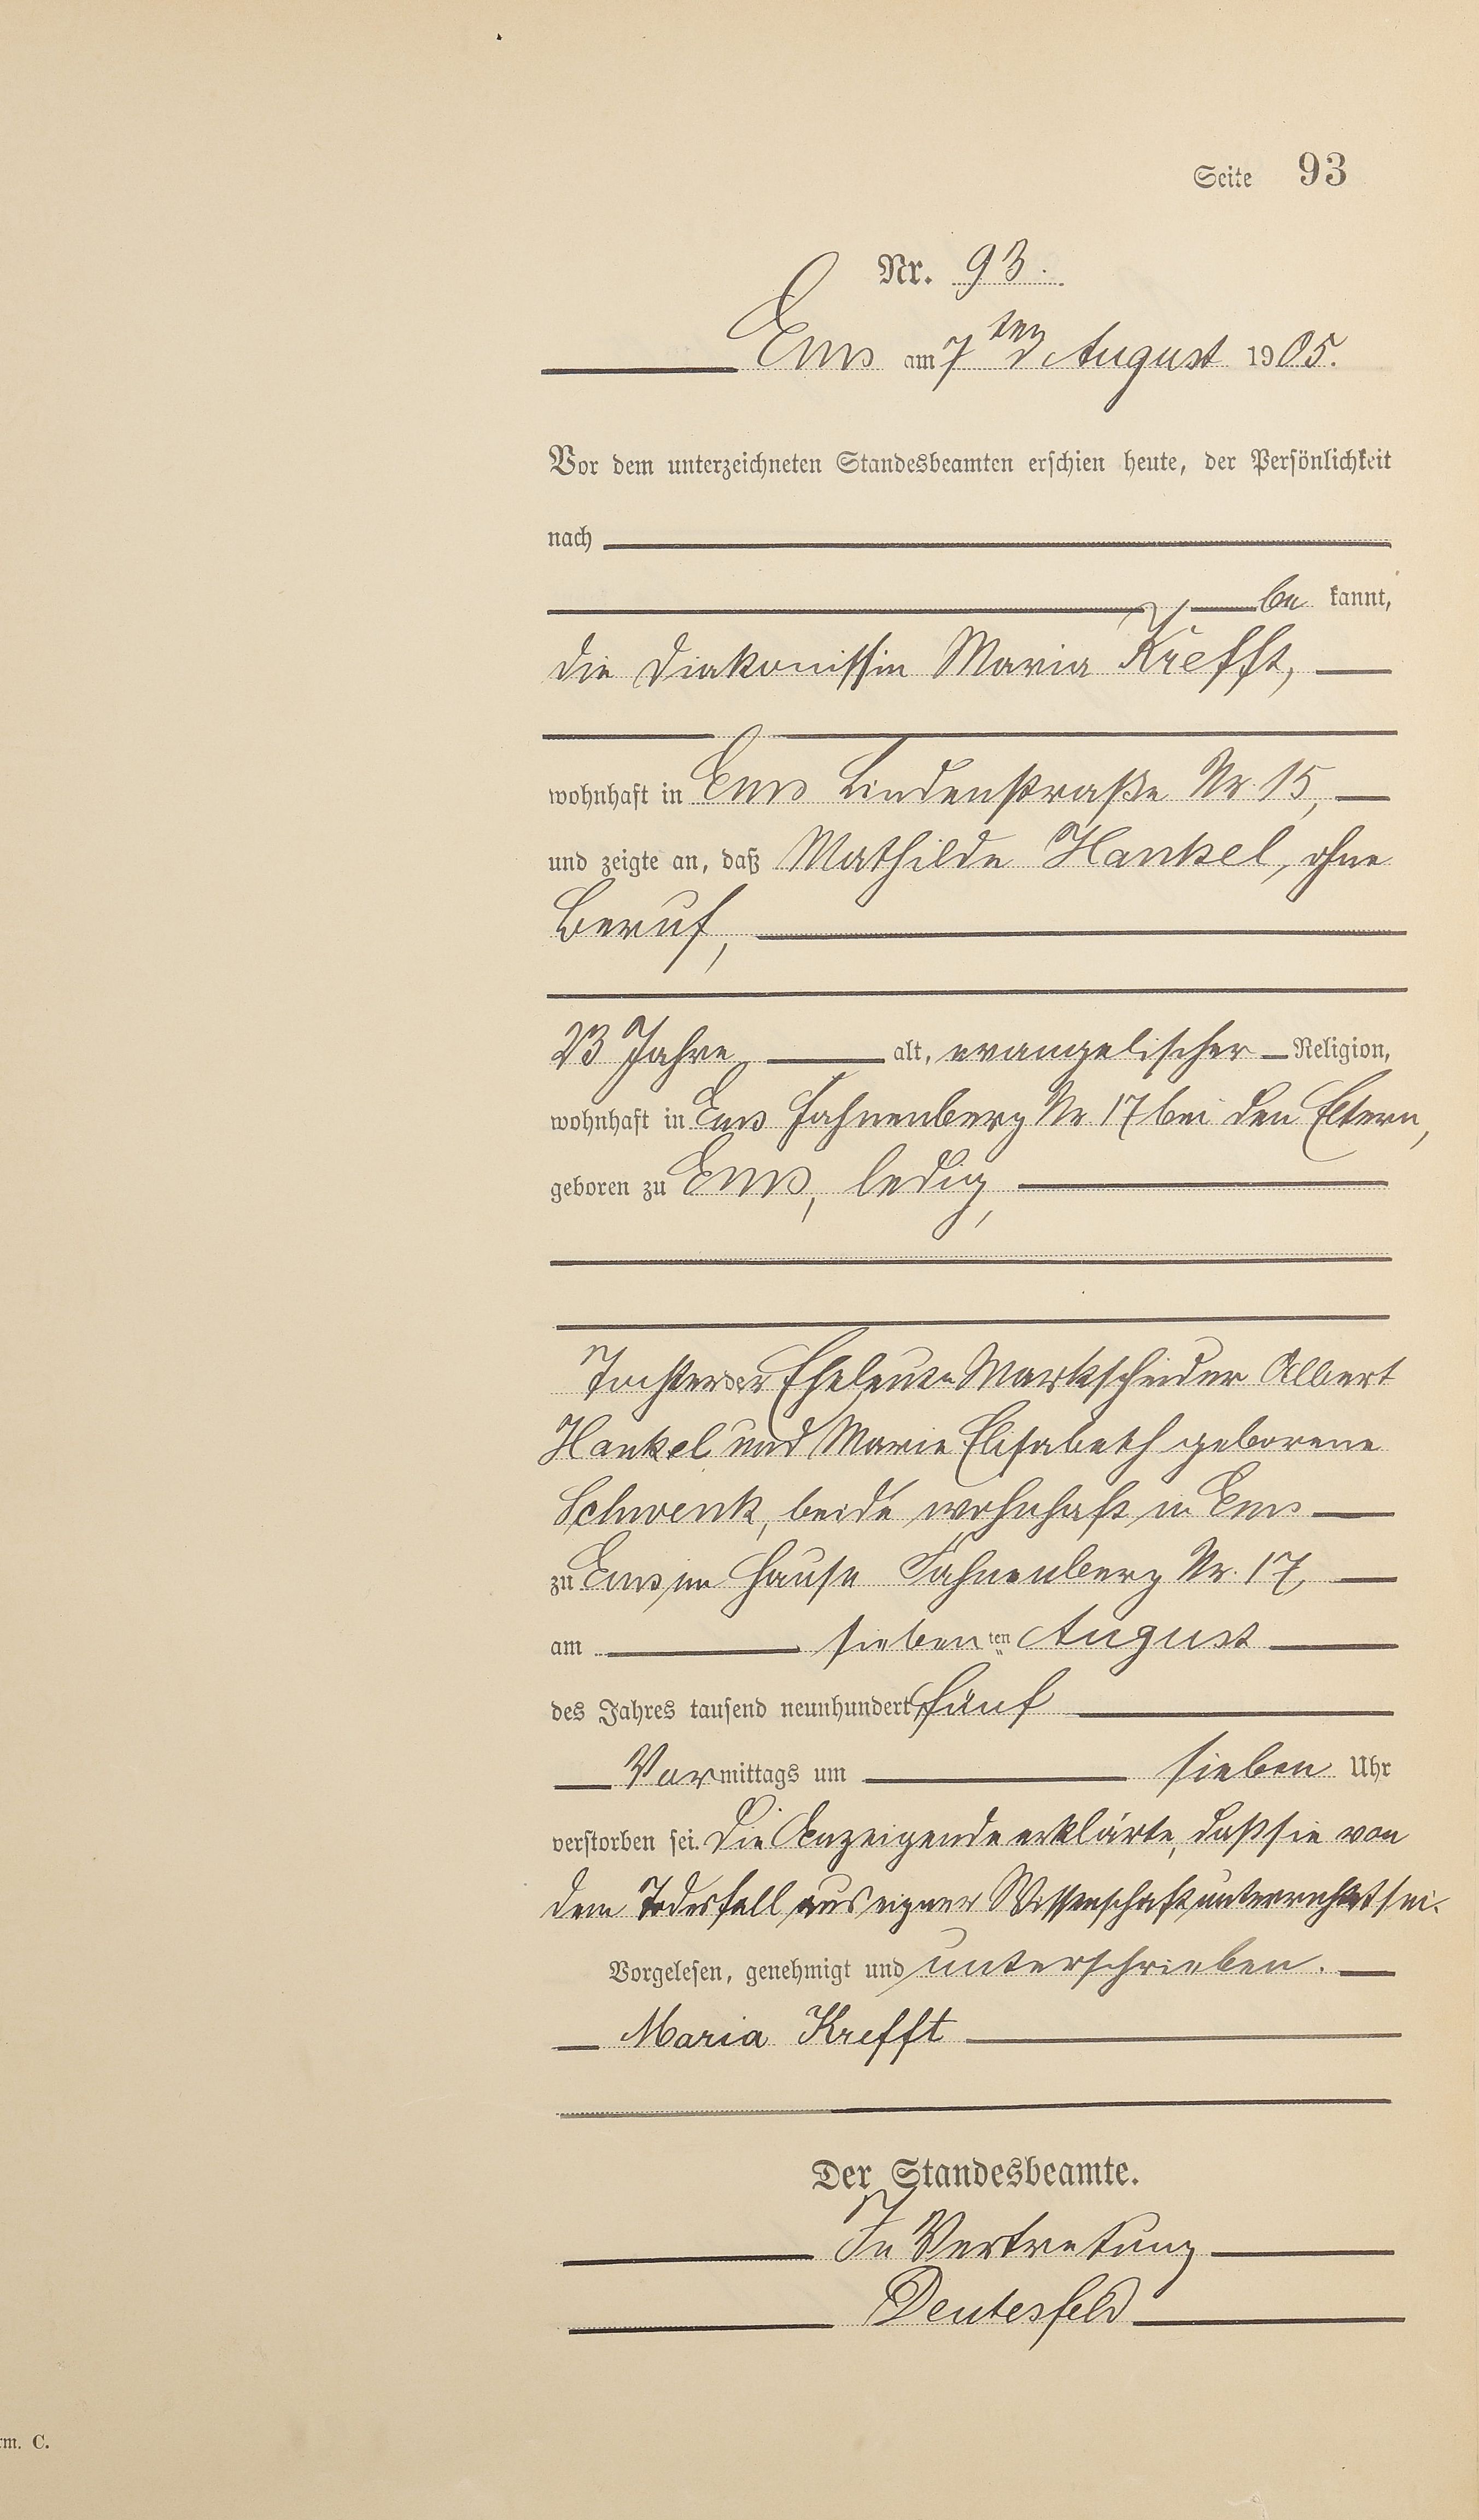 Seite 93
Nr. 93.
Ems am 7ten August 1905.
Vor dem unterzeichneten Standesbeamten erschien heute, der Persönlichkeit
nach
be kannt,
die Diakonissin Maria Krefft,
wohnhaft in Ems Lindenstraße Nr. 15,
und zeigte an, daß Mathilde Hankel, ohne
Beruf,
23 Jahre alt, evangelischer Religion,
wohnhaft in Ems Fahnenberg Nr. 17 bei den Eltern,
geboren zu Ems, ledig,
Tochter der Eheleute Markscheider Albert
Hankel und Marie Elisabeth geborene
Schwenk, beide wohnhaft in Ems
zu Ems im Hause Fahnenberg Nr. 17,
am sieben ten August
des Jahres tausend neunhundert fünf
Vormittags um sieben Uhr
verstorben sei. Die Anzeigende erklärte, daß sie von
dem Todesfall aus eigner Wissenschaft unterrichtet sei.
Vorgelesen, genehmigt und unterschrieben.
Maria Krefft
Der Standesbeamte.
In Vertretung
Deutesfeld
rm. C.